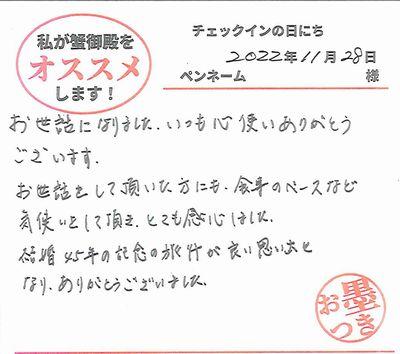 私が蟹御殿を
オススメ
します！
チェックインの日にち
2022年11月28日
ペンネーム 様
お世話になりました。いつも心使いありがとう
ございます。
お世話をして頂いた方にも、食事のペースなど
気使いをして頂き、とても感心しました。
結婚45年の記念の旅行が良い思い出と
なり、ありがとうございました。
お墨つき